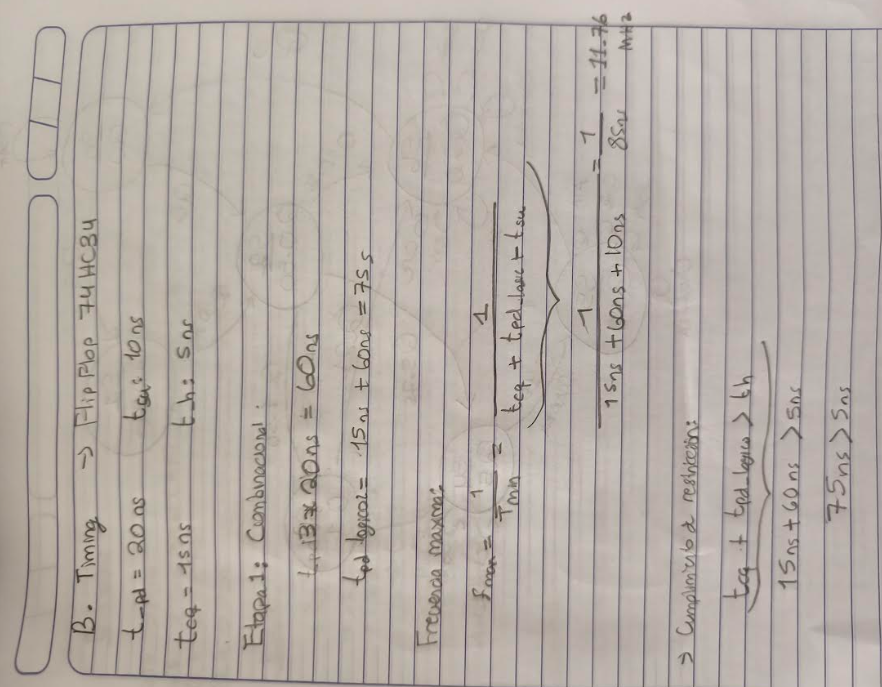 B. Timing → FlipFlop 74HC34
t_pd = 20ns tsu: 10ns
tcq = 15ns t_h: 5ns
Etapa 1: Combinacional.
3 * 20ns = 60ns
tpd logico1 = 15ns + 60ns = 75s
Frecuencia maxima:
fmax = 1/Tmin = 1/(tcq + tpd_logic + tsu)
1/(15ns + 60ns + 10ns) = 1/85ns = 11.76 MHz
→ Cumplimiento de restriccion:
tcq + tpd_logico > th
15ns + 60ns > 5ns
75ns > 5ns